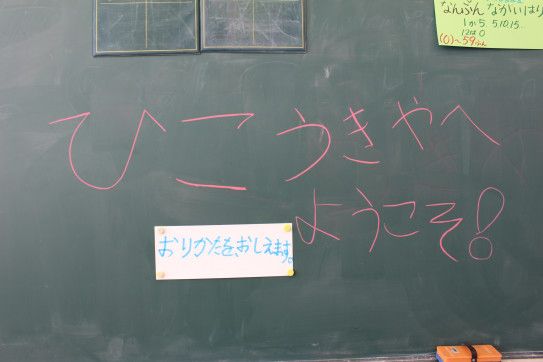 なんぷん なかいはり
1が5. 5.10.15...
12は0
(0)〜59ふん
ひこうきやへ
ようこそ!
おりかたを、おしえます。